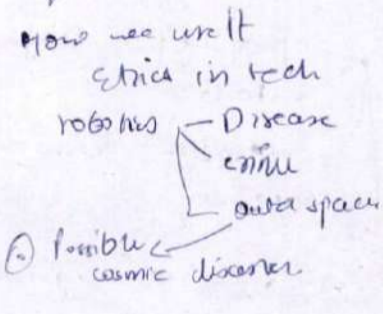 How we use It
Ethics in tech
robotics - Disease
crime
outer space
Possible
cosmic disaster